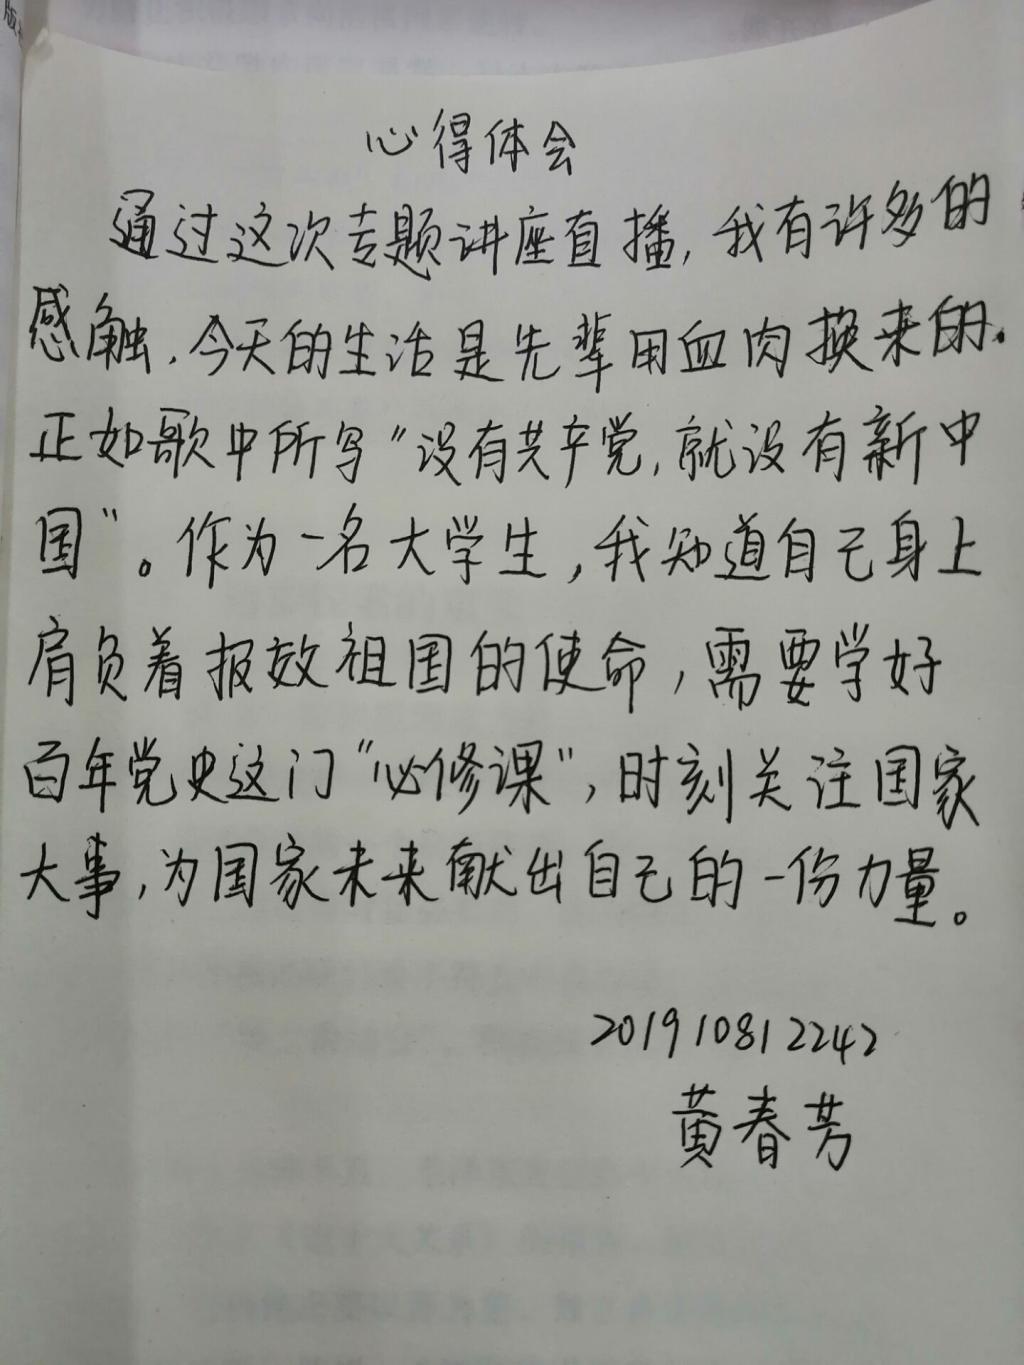 心得体会
通过这次专题讲座直播,我有许多的
感触,今天的生活是先辈用血肉换来的.
正如歌中所写“没有共产党,就没有新中
国”。作为一名大学生,我知道自己身上
肩负着报效祖国的使命,需要学好
百年党史这门“必修课”,时刻关注国家
大事,为国家未来献出自己的一份力量。
201910812242
黄春芳